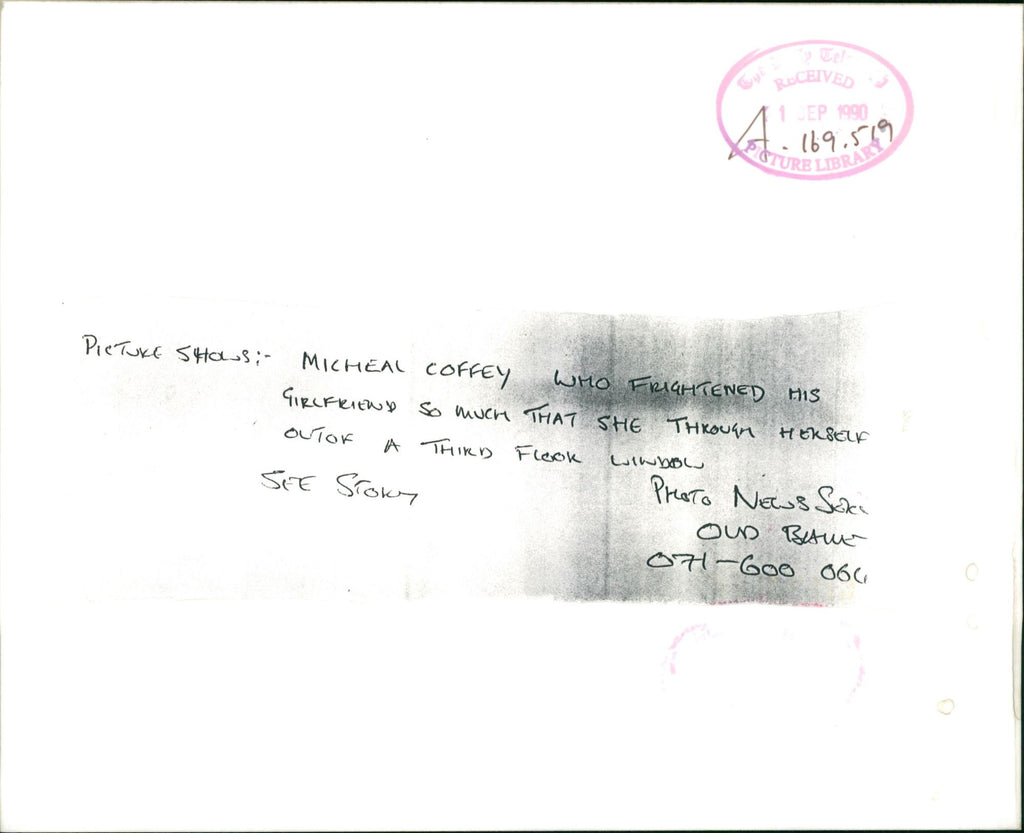 RECEIVED
1 SEP 1990
A. 169.519
PICTURE LIBRARY
PICTURE SHOWS:- MICHEAL COFFEY WHO FRIGHTENED HIS
GIRLFRIEND SO MUCH THAT SHE THROUGH HERSELF
OUTOF A THIRD FLOOR WINDOW
SEE STORY
PHOTO NEWS
OLD
071-600 06